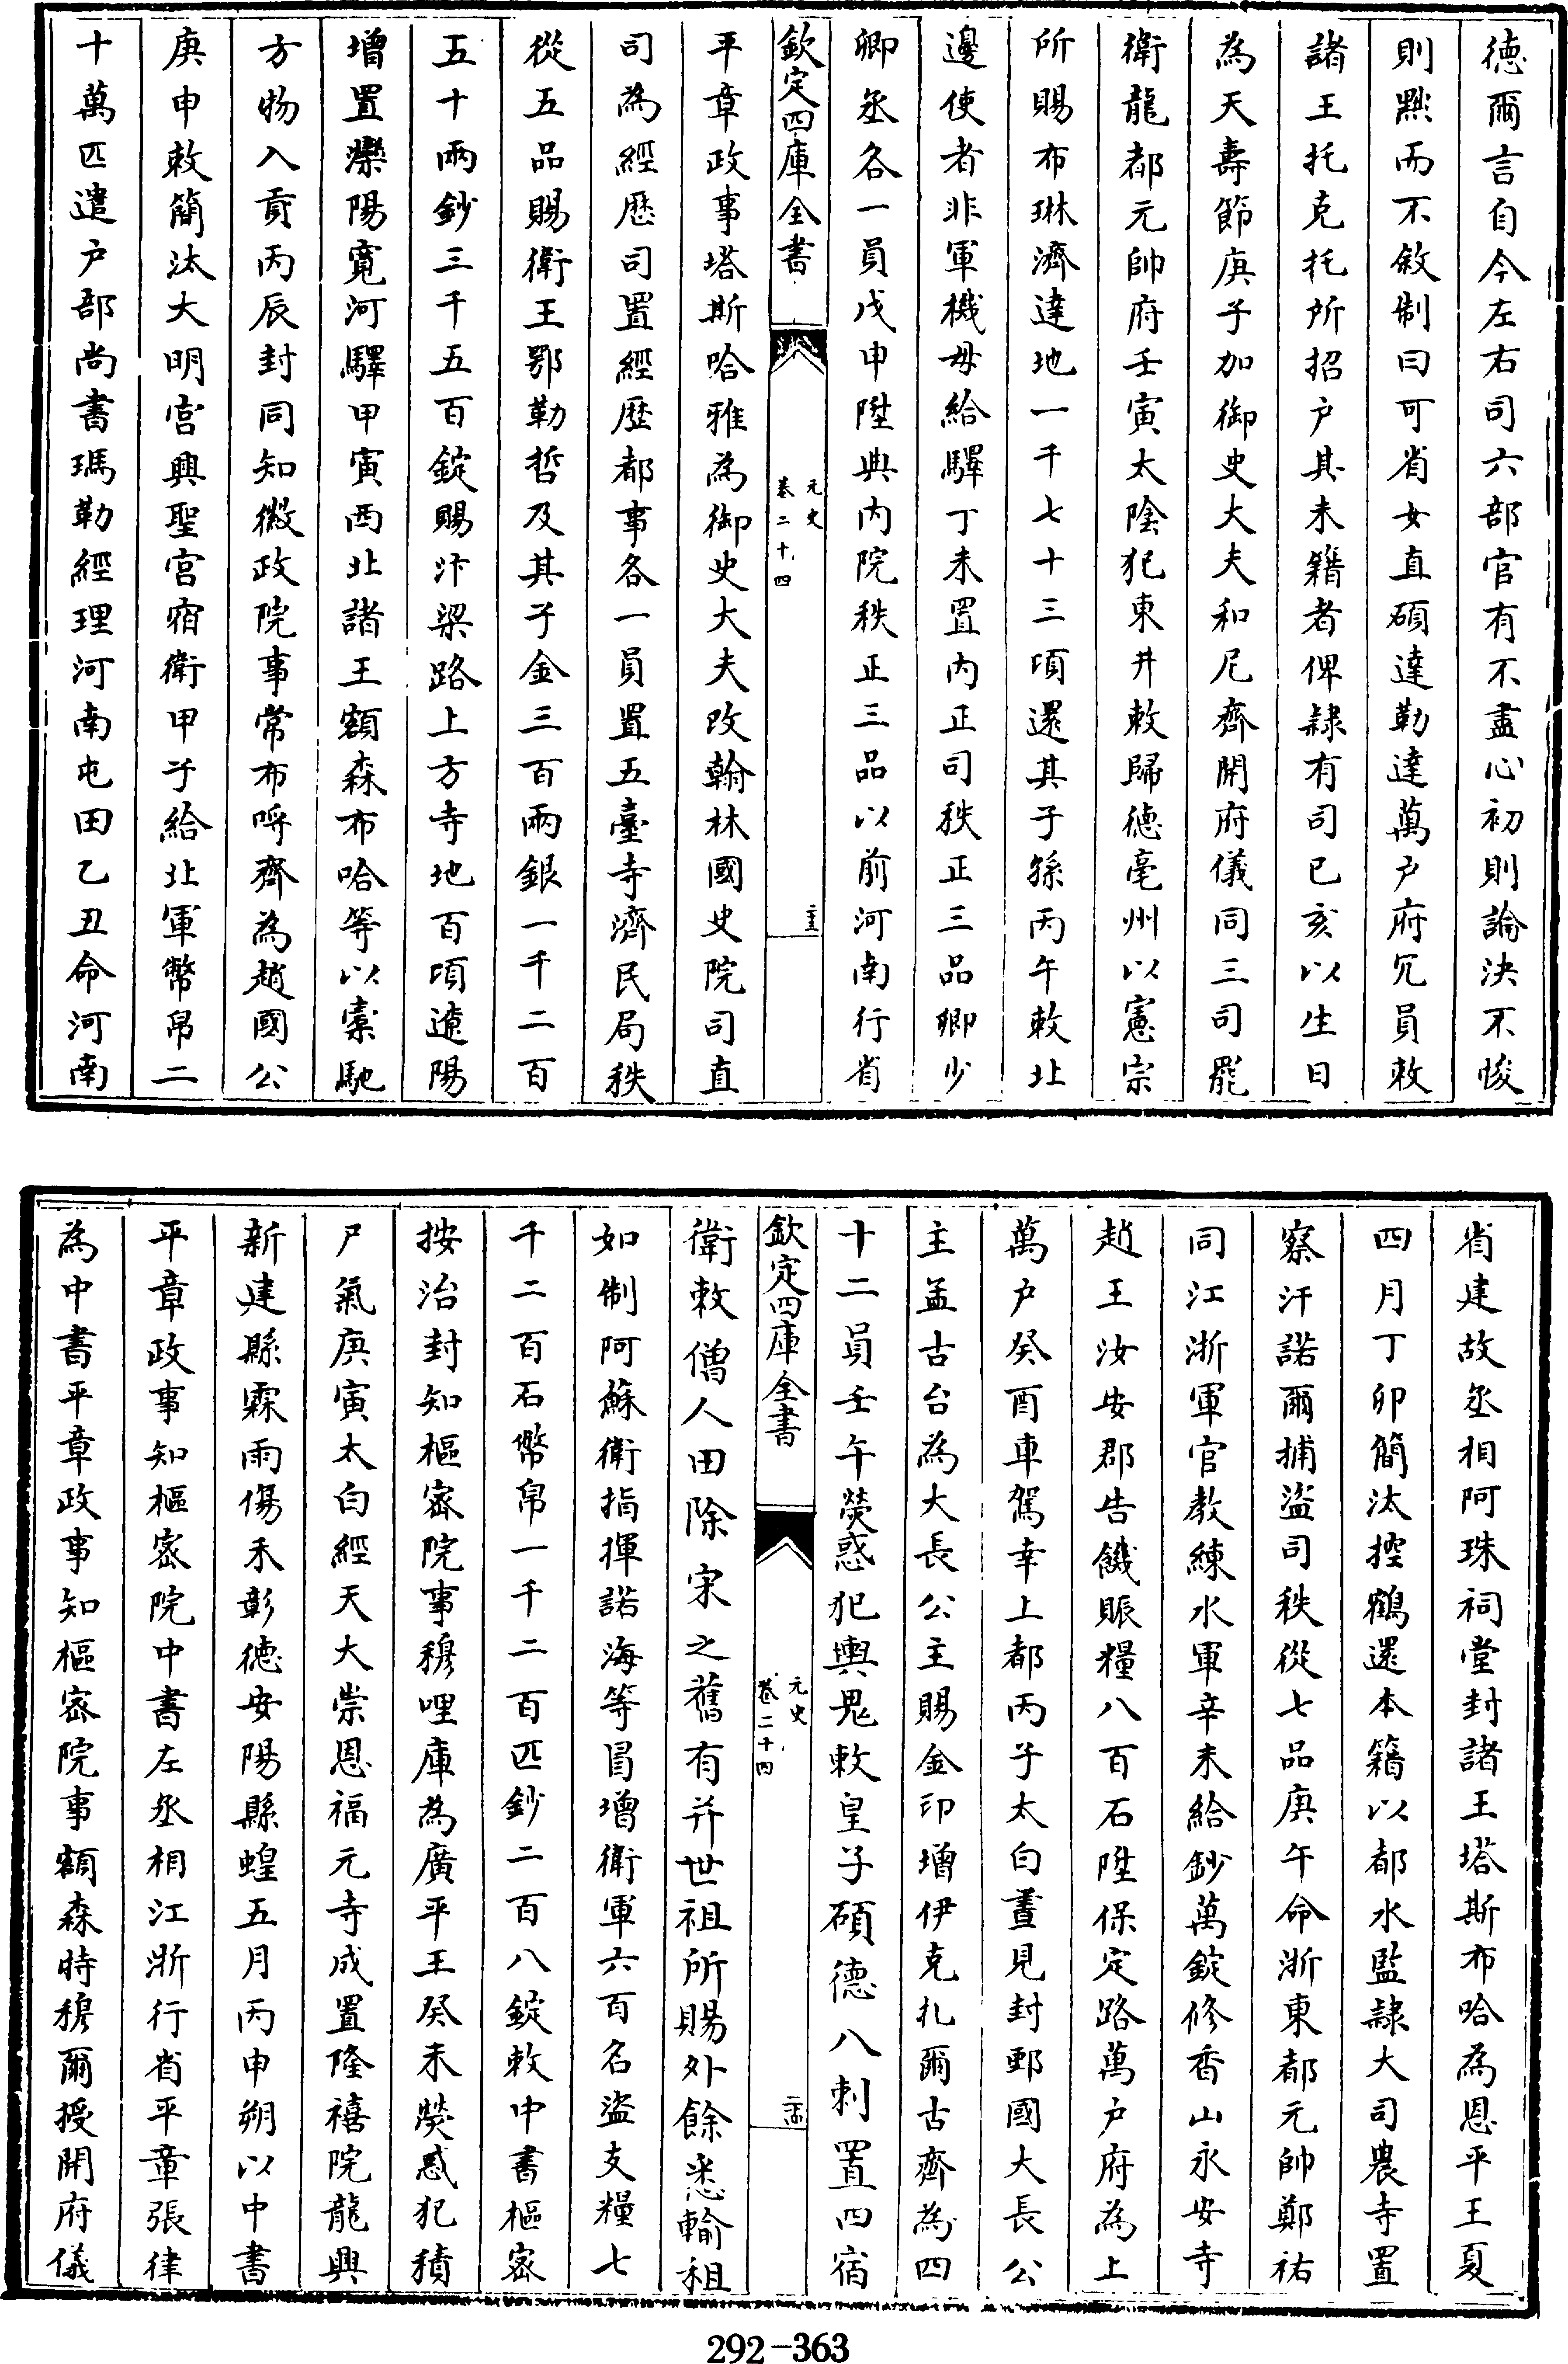 德爾言自今左右司六部官有不盡心初則論決不悛
則黜而不敘制曰可省女直碩達勒達萬戶府冗員敕
諸王托克托所招戶其未籍者俾隸有司已亥以生日
為天壽節庚子加御史大夫和尼齊開府儀同三司罷
衛龍都元帥府壬寅太陰犯東井敕歸德亳州以憲宗
所賜布琳濟達地一千七十三頃還其子孫丙午敕北
邊使者非軍機毋給驛丁未置內正司秩正三品卿少
卿丞各一員戊申陞典內院秩正三品以前河南行省
欽定四庫全書
元史
卷二十四
二十三
平章政事塔斯哈雅為御史大夫改翰林國史院司直
司為經歷司置經歷都事各一員置五臺寺濟民局秩
從五品賜衛王鄂勒哲及其子金三百兩銀一千二百
五十兩鈔三千五百錠賜汴梁路上方寺地百頃遼陽
增置灤陽寬河驛甲寅西北諸王額森布哈等以橐馳
方物入貢丙辰封同知徽政院事常布呼齊為趙國公
庚申敕簡汰大明宮興聖宮宿衛甲子給北軍幣帛二
十萬匹遣戶部尚書瑪勒經理河南屯田乙丑命河南
省建故丞相阿珠祠堂封諸王塔斯布哈為恩平王夏
四月丁卯簡汰控鶴還本籍以都水監隸大司農寺置
察汗諾爾捕盜司秩從七品庚午命浙東都元帥鄭祐
同江浙軍官教練水軍辛未給鈔萬錠修香山永安寺
趙王汝安郡告饑賑糧八百石陞保定路萬戶府為上
萬戶癸酉車駕幸上都丙子太白晝見封鄆國大長公
主孟古台為大長公主賜金印增伊克扎爾古齊為四
十二員壬午熒惑犯輿鬼敕皇子碩德八剌置四宿
欽定四庫全書
元史
卷二十四
二十四
衛敕僧人田除宋之舊有并世祖所賜外餘悉輸租
如制阿蘇衛指揮諾海等冒增衛軍六百名盜支糧七
千二百石幣帛一千二百匹鈔二百八錠敕中書樞密
按治封知樞密院事穆哩庫為廣平王癸未熒惑犯積
尸氣庚寅太白經天大崇恩福元寺成置隆禧院龍興
新建縣霖雨傷禾彰德安陽縣蝗五月丙申朔以中書
平章政事知樞密院中書左丞相江浙行省平章張律
為中書平章政事知樞密院事額森時穆爾授開府儀
292-363